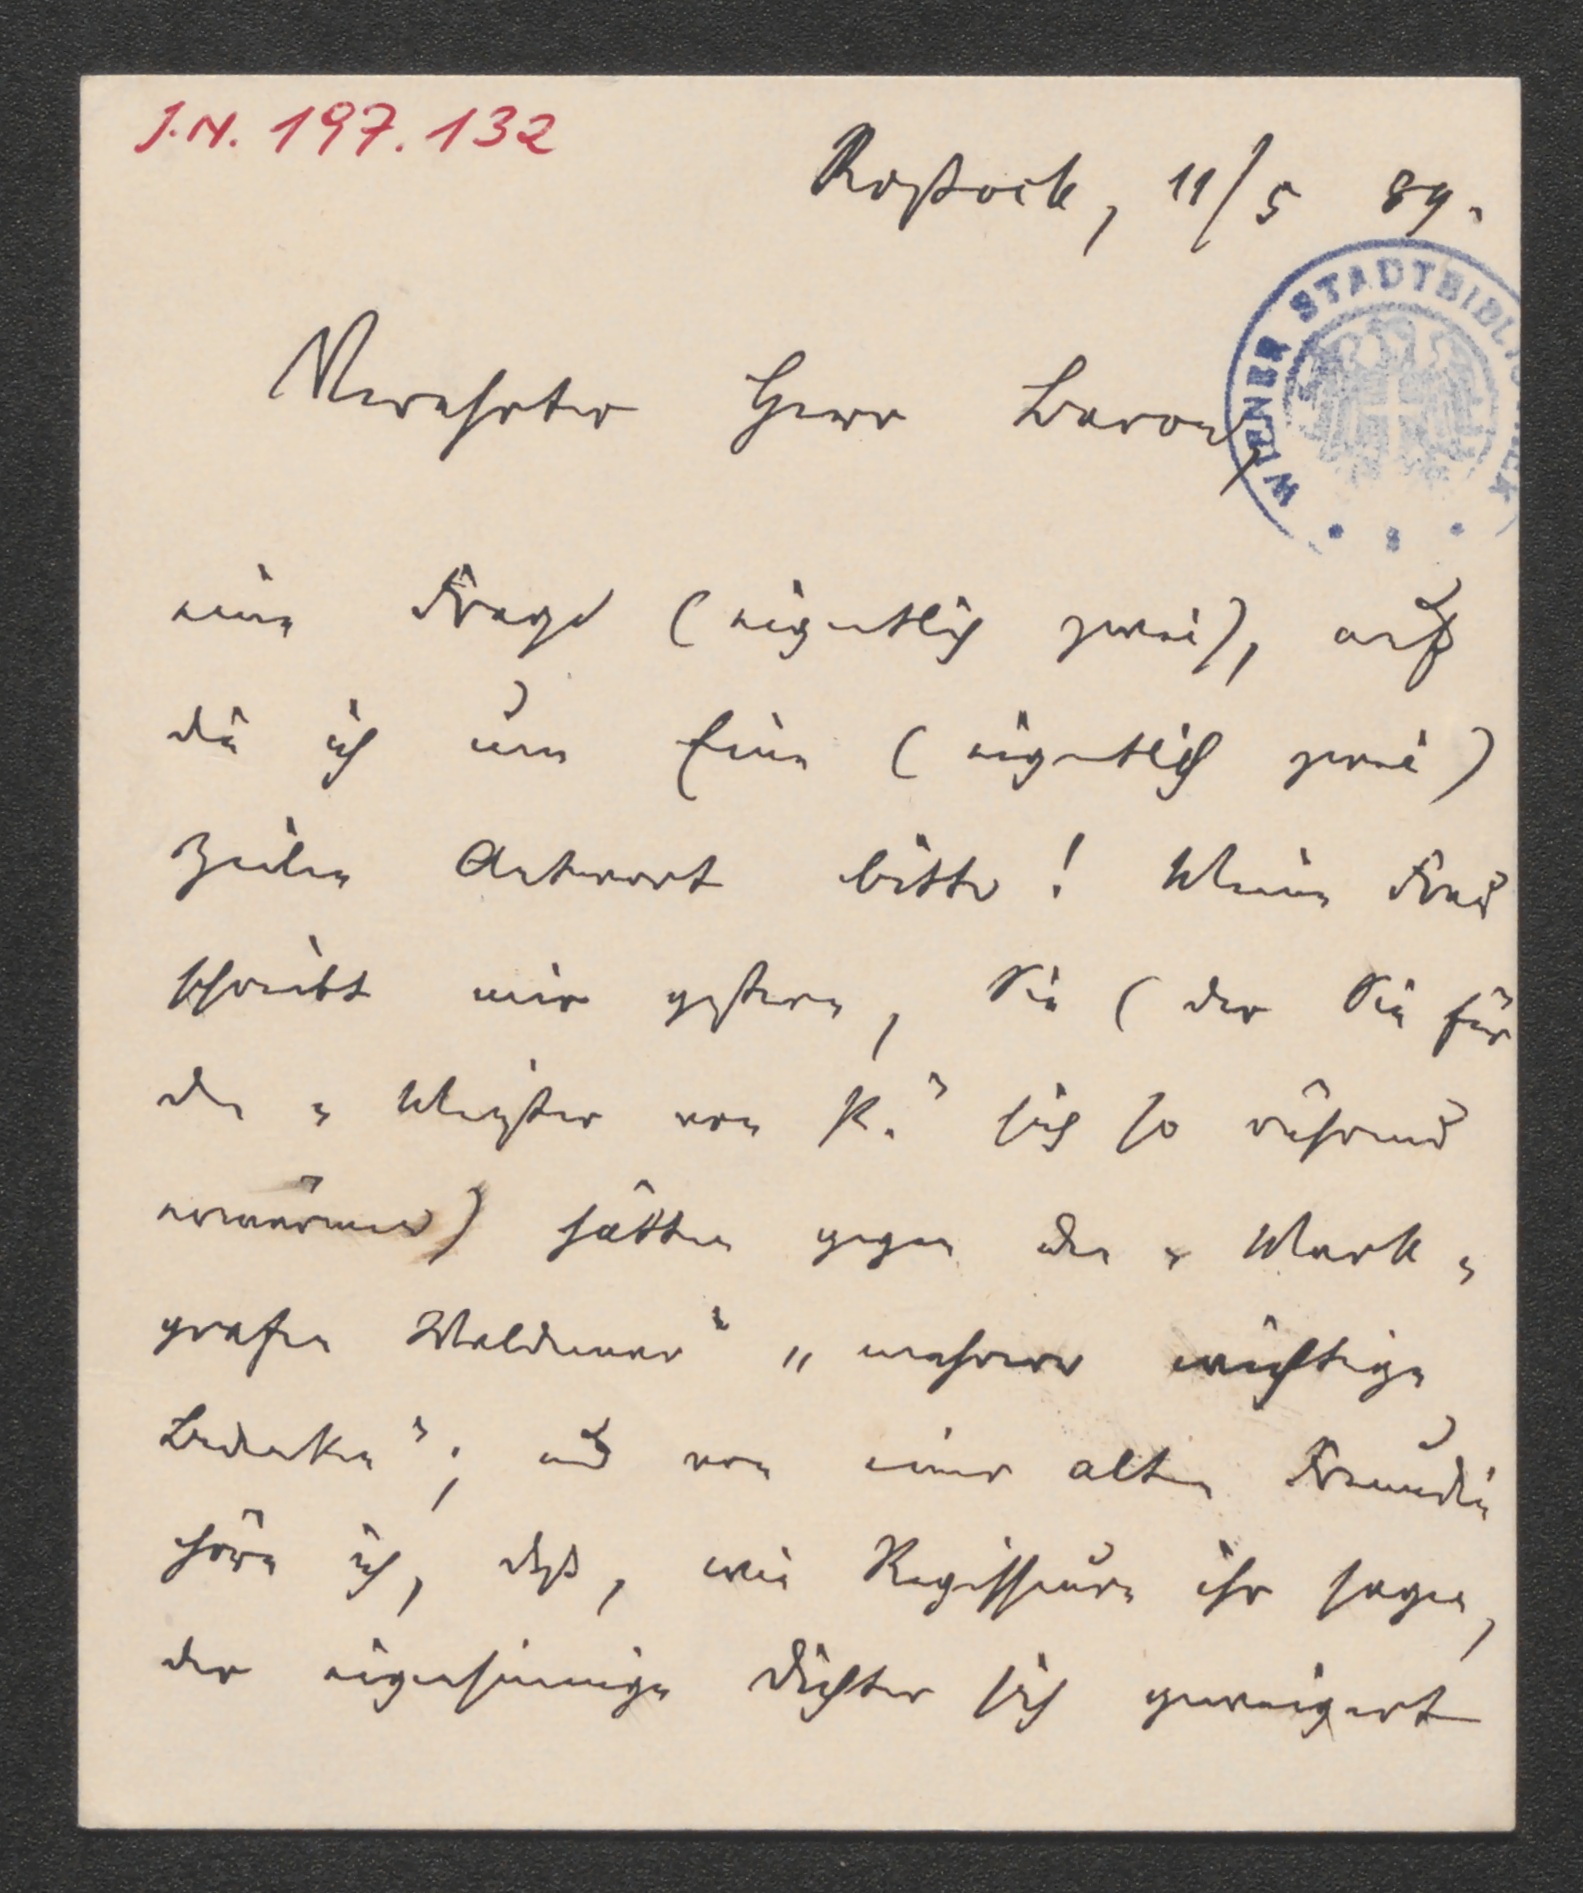 J.N. 197.132
Rostock, 11/5 89.
WIENER STADTBIBLIOTHEK
Verehrter Herr Baron,
eine Frage (eigentlich zwei), auf
die ich um Eine (eigentlich zwei)
Zeilen Antwort bitte! Meine Frau
schreibt mir gestern, Sie (der Sie für
den „Meister von P.“ sich so rührend
erwärmen) hätten gegen den „Mark-
grafen Waldemar“ „mehrere wichtige
Bedenken“; und von einer alten Freundin
höre ich, daß, wie Regisseure ihr sagen,
der eigensinnige Dichter sich geweigert